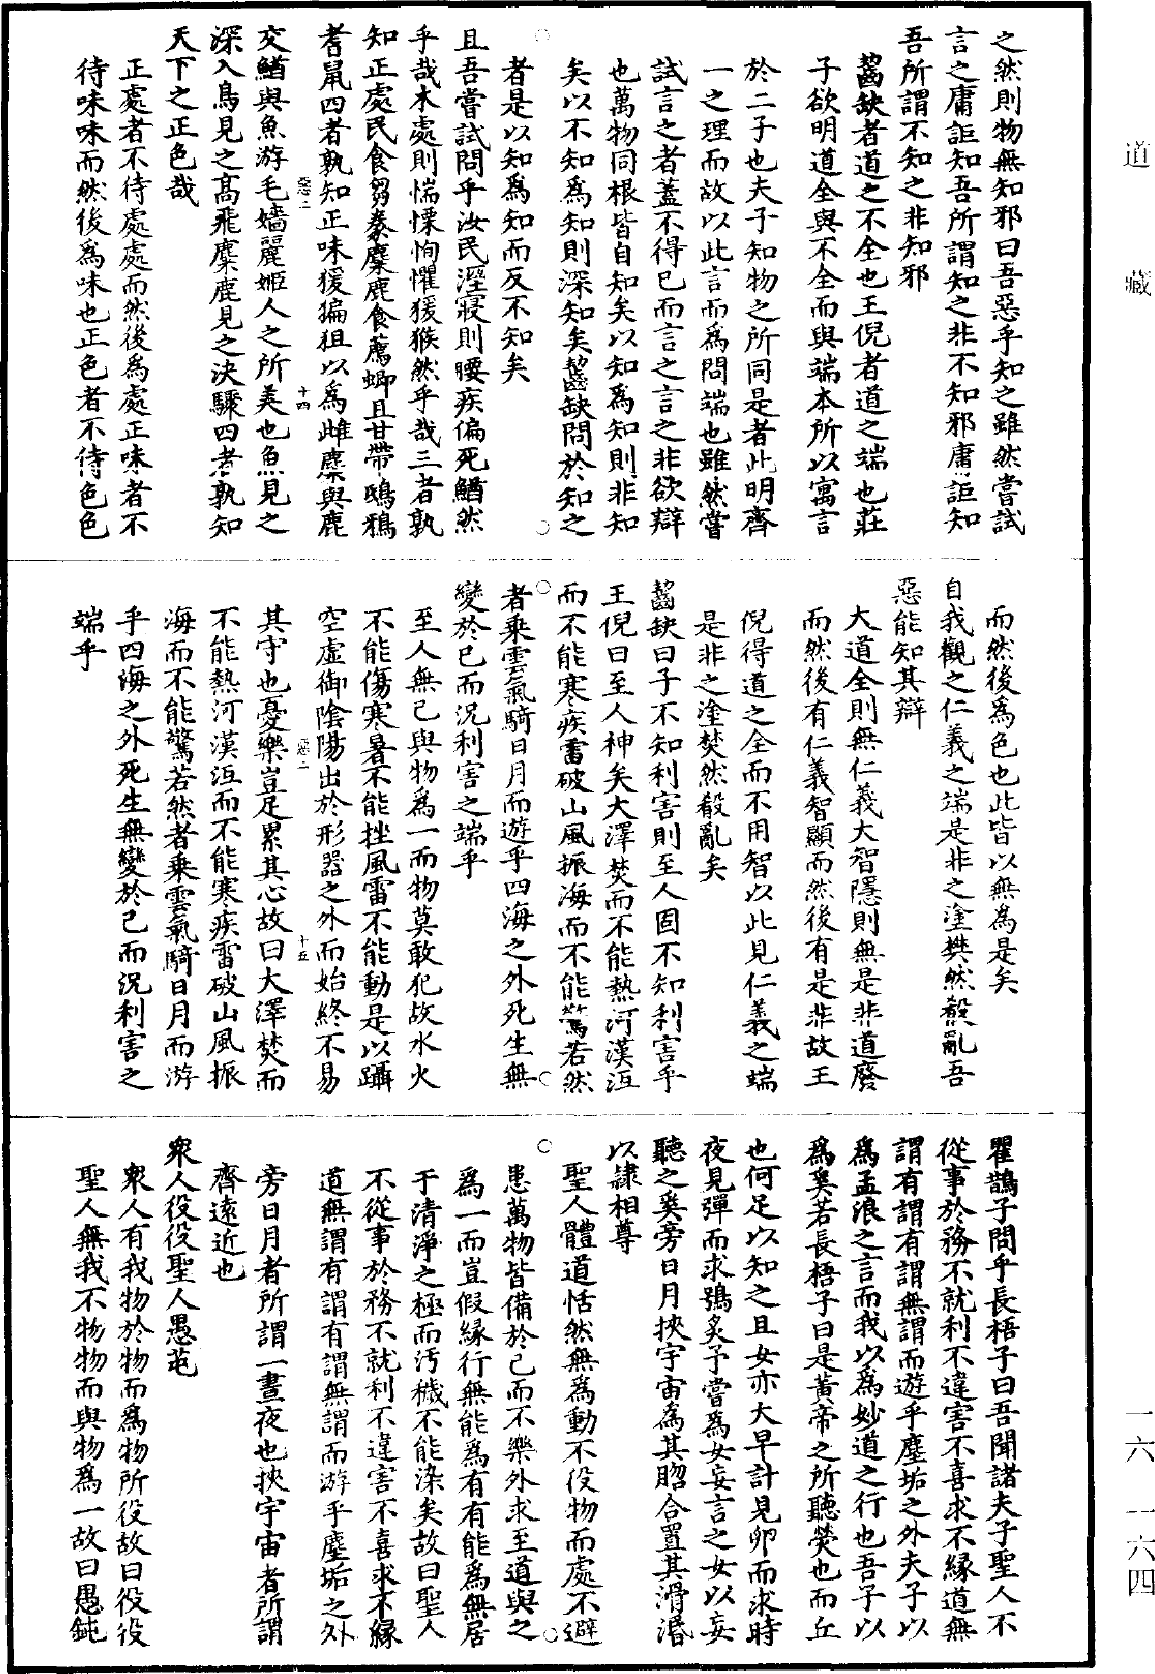 之然則物無知邪曰吾惡乎知之雖然嘗試
言之庸詎知吾所謂知之非不知邪庸詎知
吾所謂不知之非知邪
齧缺者道之不全也王倪者道之端也莊
子欲明道全與不全而與端本所以寓言
於二子也夫子知物之所同是者此明齊
一之理而故以此言而為問端也雖然嘗
試言之者蓋不得已而言之言之非欲辯
也萬物同根皆自知矣以知為知則非知
矣以不知為知則深知矣齧缺問於知之
者是以知為知而反不知矣
且吾嘗試問乎汝民溼寢則腰疾偏死鰌然
乎哉木處則惴慄恂懼猨猴然乎哉三者孰
知正處民食芻豢麋鹿食薦蝍且甘帶鴟鴉
耆鼠四者孰知正味猨猵狙以為雌麋與鹿
惡二
十四
交鰌與魚游毛嬙麗姬人之所美也魚見之
深入鳥見之高飛麋鹿見之決驟四者孰知
天下之正色哉
正處者不待處處而然後為處正味者不
待味味而然後為味也正色者不待色色
而然後為色也此皆以無為是矣
自我觀之仁義之端是非之塗樊然殽亂吾
惡能知其辯
大道全則無仁義大智隱則無是非道廢
而然後有仁義智顯而然後有是非故王
倪得道之全而不用智以此見仁義之端
是非之塗樊然殽亂矣
齧缺曰子不知利害則至人固不知利害乎
王倪曰至人神矣大澤焚而不能熱河漢沍
而不能寒疾雷破山風振海而不能驚若然
者乘雲氣騎日月而遊乎四海之外死生無
變於已而況利害之端乎
至人無己與物為一而物莫敢犯故水火
不能傷寒暑不能挫風雷不能動是以躡
空虛御陰陽出於形器之外而始終不易
惡二
十五
其守也憂樂豈足累其心故曰大澤焚而
不能熱河漢沍而不能寒疾雷破山風振
海而不能驚若然者乘雲氣騎日月而游
乎四海之外死生無變於己而況利害之
端乎
瞿鵲子問乎長梧子曰吾聞諸夫子聖人不
從事於務不就利不違害不喜求不緣道無
謂有謂有謂無謂而遊乎塵垢之外夫子以
為孟浪之言而我以為妙道之行也吾子以
為奚若長梧子曰是黃帝之所聽熒也而丘
也何足以知之且女亦大早計見卵而求時
夜見彈而求鴞炙予嘗為女妄言之女以妄
聽之奚旁日月挾宇宙為其脗合置其滑涽
以隷相尊
聖人體道恬然無為動不役物而處不避
患萬物皆備於己而不樂外求至道與之
為一而豈假緣行無能為有有能為無居
于清淨之極而汚穢不能染矣故曰聖人
不從事於務不就利不違害不喜求不緣
道無謂有謂有謂無謂而游乎塵垢之外
旁日月者所謂一晝夜也挾宇宙者所謂
齊遠近也
衆人役役聖人愚芚
衆人有我物於物而為物所役故曰役役
聖人無我不物物而與物為一故曰愚鈍
道藏
一六 一六四